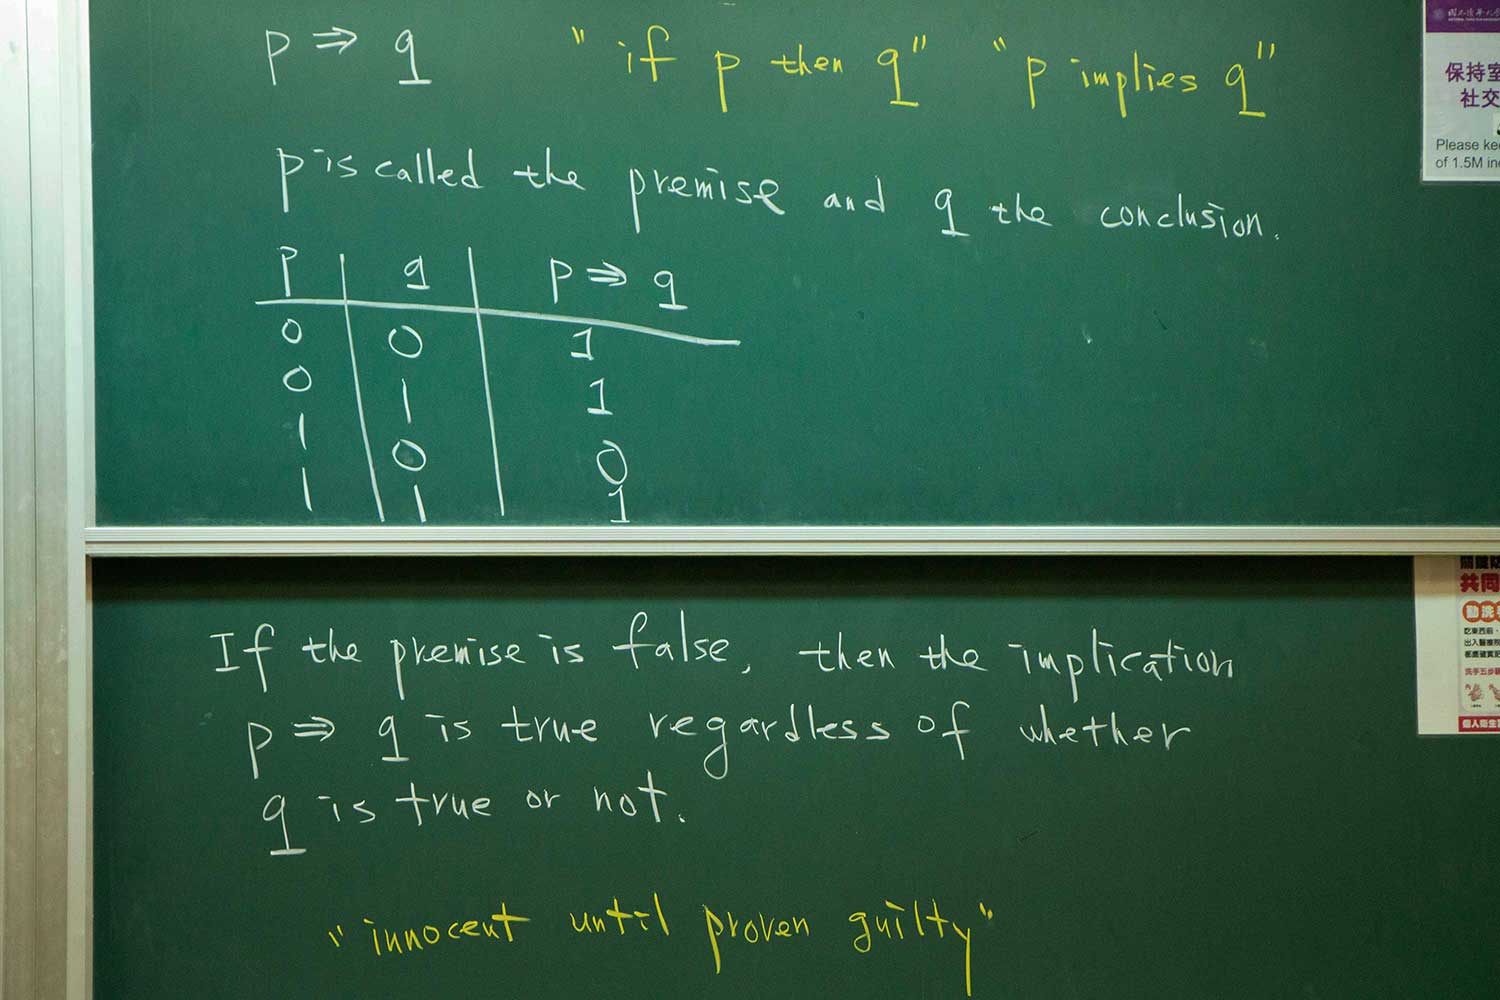 p ⇒ q "if p then q" "p implies q"
p is called the premise and q the conclusion.
p q p ⇒ q
0 0 1
0 1 1
1 0 0
1 1 1
If the premise is false, then the implication
p ⇒ q is true regardless of whether
q is true or not.
"innocent until proven guilty"
保持室
社交
Please kee
of 1.5M in
共同
動 洗
出入醫療院
洗手五步
個人衛生